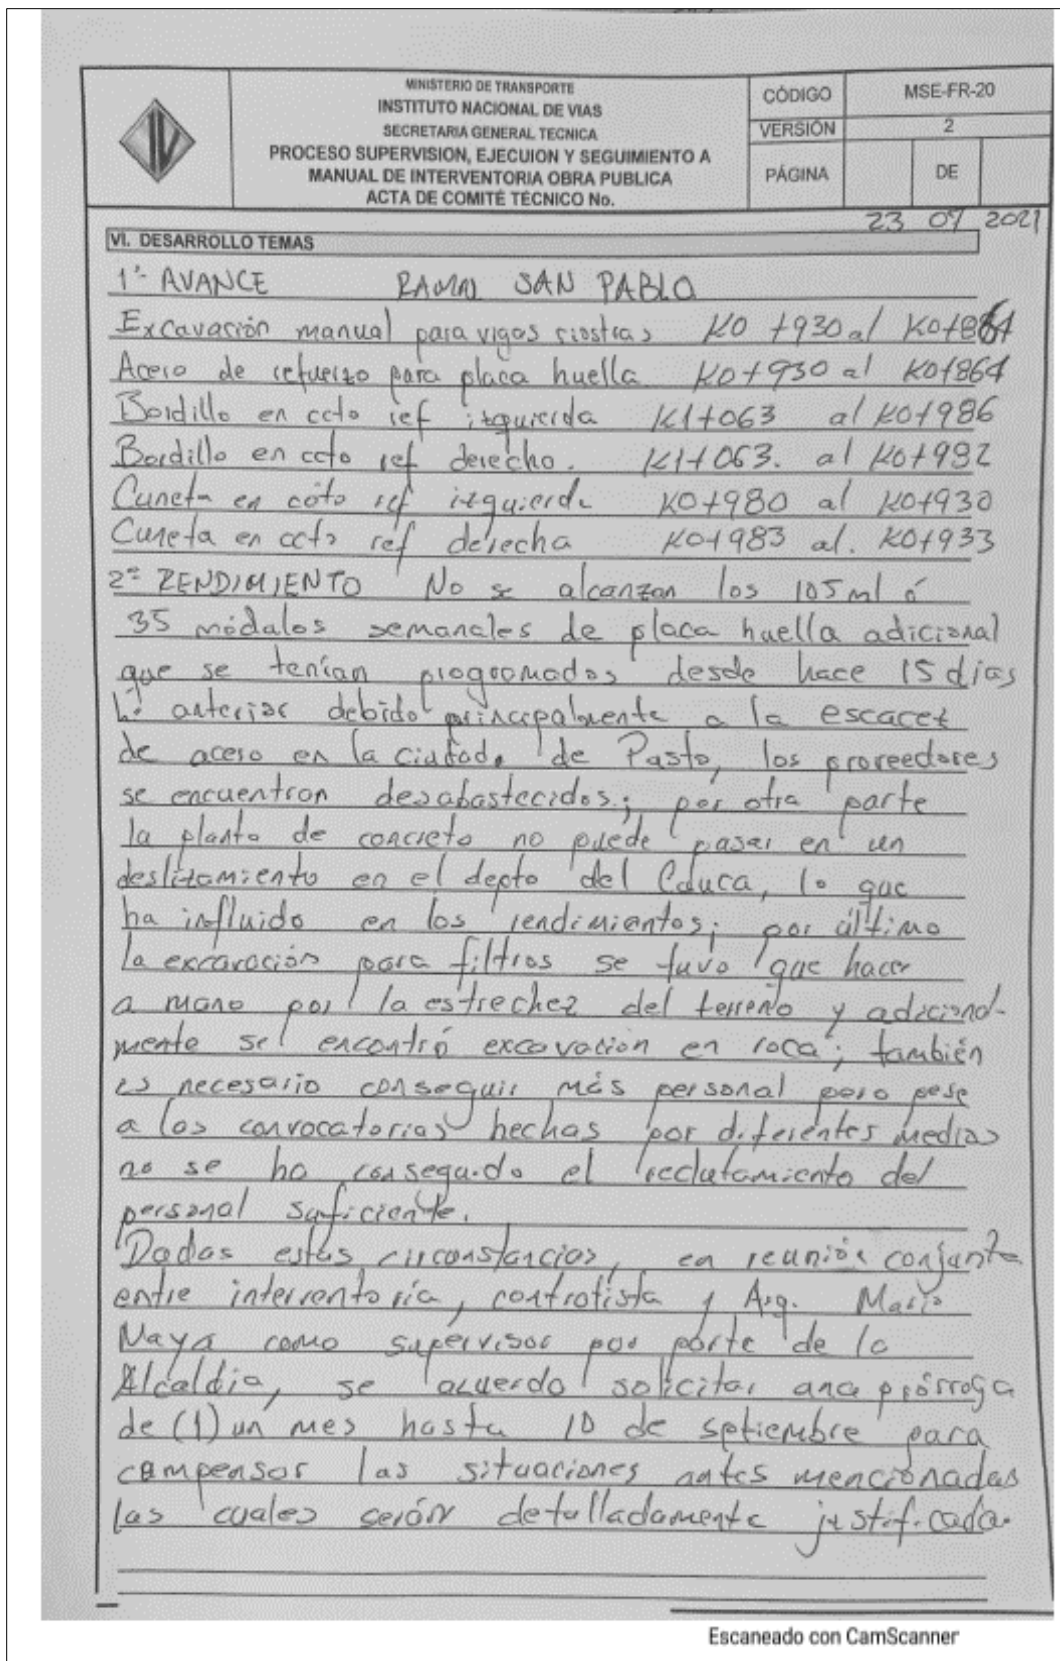 MINISTERIO DE TRANSPORTE
INSTITUTO NACIONAL DE VIAS
SECRETARIA GENERAL TECNICA
PROCESO SUPERVISION, EJECUION Y SEGUIMIENTO A
MANUAL DE INTERVENTORIA OBRA PUBLICA
ACTA DE COMITÉ TÉCNICO No.
CÓDIGO MSE-FR-20
VERSIÓN 2
PÁGINA DE
23 07 2021
VI. DESARROLLO TEMAS
1º AVANCE RAMAL SAN PABLO
Excavación manual para vigas riostras K0+930 al K0+864
Acero de refuerzo para placa huella K0+930 al K0+864
Bordillo en ccto ref izquierda K1+063 al K0+986
Bordillo en ccto ref derecho. K1+063. al K0+982
Cuneta en ccto ref izquierda K0+980 al K0+930
Cuneta en ccto ref derecha K0+983 al. K0+933
2º RENDIMIENTO No se alcanzan los 105 ml ó
35 módulos semanales de placa huella adicional
que se tenían programados desde hace 15 días
lo anterior debido principalmente a la escacez
de acero en la ciudad de Pasto, los proveedores
se encuentran desabastecidos; por otra parte
la planta de concreto no puede pasar en un
deslizamiento en el depto del Cauca, lo que
ha influido en los rendimientos; por último
la excavación para filtros se tuvo que hacer
a mano por la estrechez del terreno y adicional-
mente se encontró excavación en roca; también
es necesario conseguir más personal pero pese
a las convocatorias hechas por diferentes medios
no se ha conseguido el reclutamiento del
personal suficiente.
Dadas estas circunstancias, en reunión conjunta
entre interventoría, contratista y Arq. Mario
Naya como supervisor por parte de la
Alcaldía, se acuerdo solicitar una prórroga
de (1) un mes hasta 10 de septiembre para
compensar las situaciones antes mencionadas
las cuales serán detalladamente justificada.
Escaneado con CamScanner